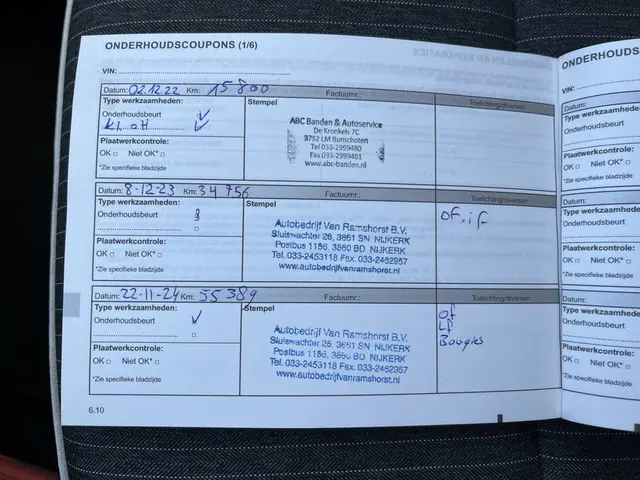 ONDERHOUDSCOUPONS (1/6)
VIN:
Datum: 02.12.22 Km: 15 800 Factuurnr.: Toelichting/diversen
Type werkzaamheden: Stempel
Onderhoudsbeurt
kl. oH
Plaatwerkcontrole:
OK Niet OK*
*Zie specifieke bladzijde
ABC Banden & Autoservice
De Kronkels 7C
3752 LM Bunschoten
Tel 033-2999480
Fax 033-2999481
www.abc-banden.nl
Datum: 8-12-23 Km: 34 756 Factuurnr.: Toelichting/diversen
Type werkzaamheden: Stempel
Onderhoudsbeurt
Plaatwerkcontrole:
OK Niet OK*
*Zie specifieke bladzijde
Autobedrijf Van Ramshorst B.V.
Sluiswachter 26, 3861 SN NIJKERK
Postbus 1186, 3860 BD NIJKERK
Tel. 033-2453118 Fax. 033-2462957
www.autobedrijfvanramshorst.nl
oF, iF
Datum: 22-11-24 Km: 55 389 Factuurnr.: Toelichting/diversen
Type werkzaamheden: Stempel
Onderhoudsbeurt
Plaatwerkcontrole:
OK Niet OK*
*Zie specifieke bladzijde
Autobedrijf Van Ramshorst B.V.
Sluiswachter 26, 3861 SN NIJKERK
Postbus 1186, 3860 BD NIJKERK
Tel. 033-2453118 Fax. 033-2462957
www.autobedrijfvanramshorst.nl
of
LF
Bougies
6.10
ONDERHOUDS
VIN:
Datum:
Type werkzaamheden:
Onderhoudsbeurt
Plaatwerkcontrole:
OK Niet OK*
*Zie specifieke bladzijde
Datum:
Type werkzaamheden:
Onderhoudsbeurt
Plaatwerkcontrole:
OK Niet OK*
*Zie specifieke bladzijde
Datum:
Type werkzaamheden:
Onderhoudsbeurt
Plaatwerkcontrole:
OK Niet OK*
*Zie specifieke bladzijde